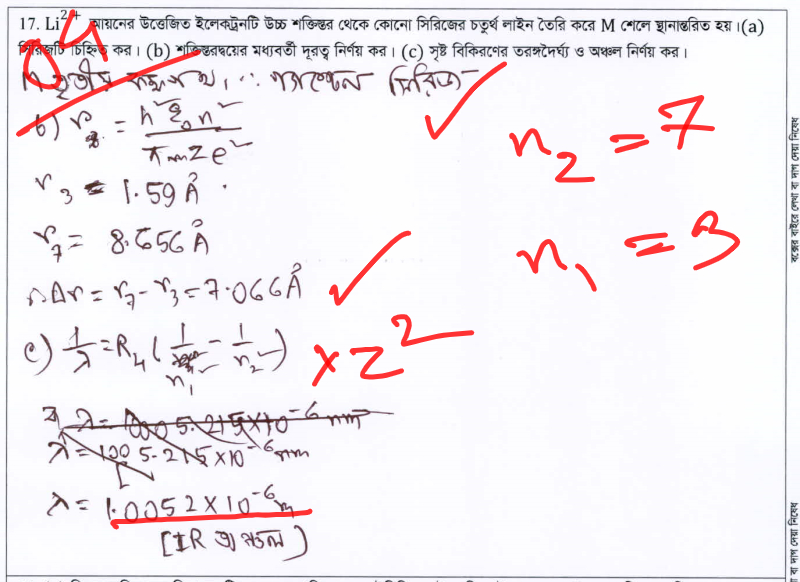 17. Li²⁺ আয়নের উত্তেজিত ইলেকট্রনটি উচ্চ শক্তিস্তর থেকে কোনো সিরিজের চতুর্থ লাইন তৈরি করে M শেলে স্থানান্তরিত হয়। (a)
সিরিজটি চিহ্নিত কর। (b) শক্তিস্তরদ্বয়ের মধ্যবর্তী দূরত্ব নির্ণয় কর। (c) সৃষ্ট বিকিরণের তরঙ্গদৈর্ঘ্য ও অঞ্চল নির্ণয় কর।
04
তৃতীয় কক্ষপথ, ∴ প্যাশ্চেন সিরিজ
b) r = h²ε₀n² / πmze²
r₃ = 1.59 Å
r₇ = 8.656 Å
∴ Δr = r₇ - r₃ = 7.066 Å
n₂ = 7
n₁ = 3
c) 1/λ = R_H (1/n₁² - 1/n₂²) × Z²
λ = 1.0052 × 10⁻⁶ m
[IR অঞ্চল)
বক্সের বাইরে লেখা বা দাগ দেয়া নিষেধ
বা দাগ দেয়া নিষেধ